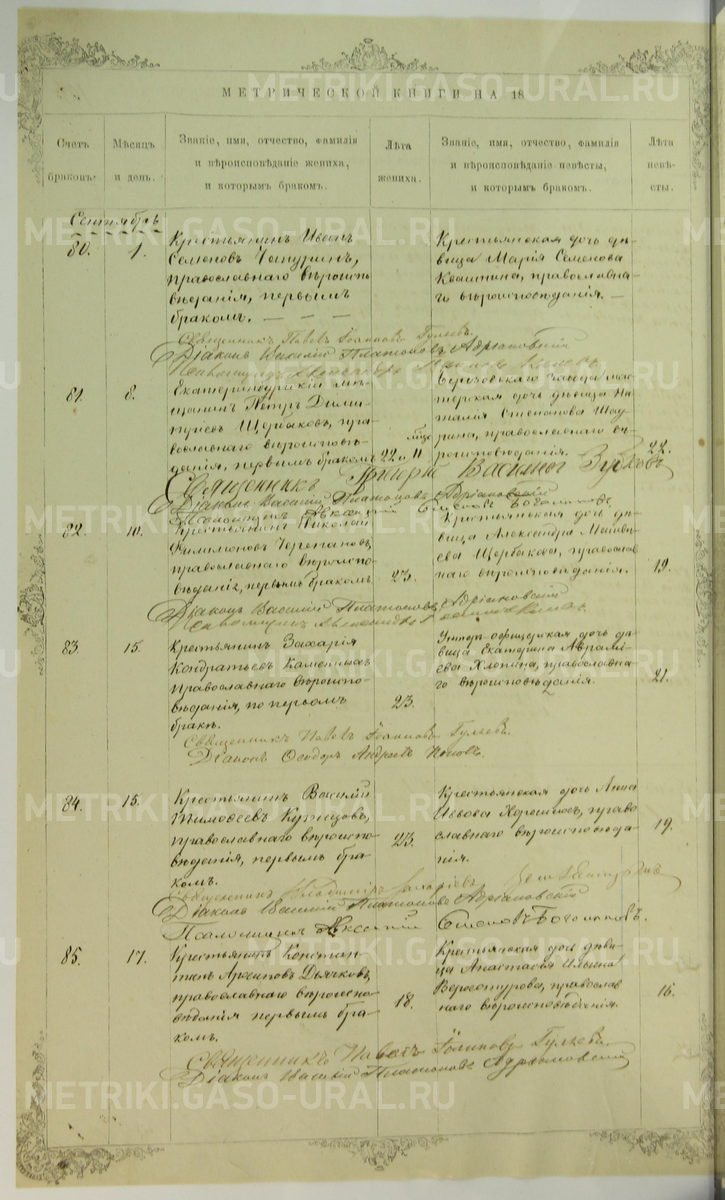 МЕТРИЧЕСКОЙ КНИГИ НА 18
Счетъ браковъ.
Мѣсяцъ и день.
Званіе, имя, отчество, фамилія и вѣроисповѣданіе жениха, и которымъ бракомъ.
Лѣта жениха.
Званіе, имя, отчество, фамилія и вѣроисповѣданіе невѣсты, и которымъ бракомъ.
Лѣта невѣсты.
Сентябрь
80. 1.
Крестьянинъ Иванъ
Семеновъ
православнаго вѣроиспо
вѣданія, первымъ
бракомъ.
Крестьянская дочь дѣ-
вица Марія Семенова
православна-
го вѣроисповѣданія.
Священникъ Павелъ Іоанновъ Гуляевъ.
Діаконъ Василій Платоновъ Адріановскій
81. 8.
Екатеринбургскій мѣ-
щанинъ Петръ Дими-
тріевъ Щербаковъ, пра-
вославнаго вѣроисповѣ-
данія, первымъ бракомъ
22 и 11
мѣс.
завода мас-
терская дочь дѣвица На-
талія Степанова
православнаго вѣ-
роисповѣданія.
22.
Священникъ Григорій Васильевъ Зубковъ
Діаконъ Василій Платоновъ Адріановскій
Псаломщикъ Авксентій
82. 10.
Крестьянинъ Николай
Филимоновъ Черепановъ,
православнаго вѣроиспо-
вѣданія, первымъ бракомъ
23.
Крестьянская дочь дѣ-
вица Александра Матвѣ-
ева Щербакова, православ
наго вѣроисповѣданія.
19.
Діаконъ Василій Платоновъ Адріановскій
83 15.
Крестьянинъ Захарія
Кондратьевъ
православнаго вѣроиспо-
вѣданія, по первомъ
бракѣ.
23.
Унтеръ-офицерская дочь дѣ-
вица Екатерина Аврамі-
ева Хлопина, православна-
го вѣроисповѣданія.
21.
Священникъ Павелъ Іоанновъ Гуляевъ.
Діаконъ Ѳеодоръ Андреевъ Поповъ.
84. 15.
Крестьянинъ Василій
Тимофеевъ Кузнецовъ,
православнаго вѣроиспо-
вѣданія, первымъ бра-
комъ.
23.
Крестьянская дочь Анна
Львова право
славнаго вѣроисповѣда-
нія.
19.
Священникъ Владиміръ
Діаконъ Василій Платоновъ Адріановскій
Псаломщикъ Авксентій
85. 17.
Крестьянинъ Констан
тинъ Архиповъ Дьячковъ,
православнаго вѣроиспо-
вѣданія первымъ бра-
комъ.
18.
Крестьянская дочь дѣви-
ца Анастасія Ильина
православ
наго вѣроисповѣданія.
16.
Священникъ Павелъ Іоанновъ Гуляевъ.
Діаконъ Василій Платоновъ Адріановскій
METRIKI.GASO-URAL.RU